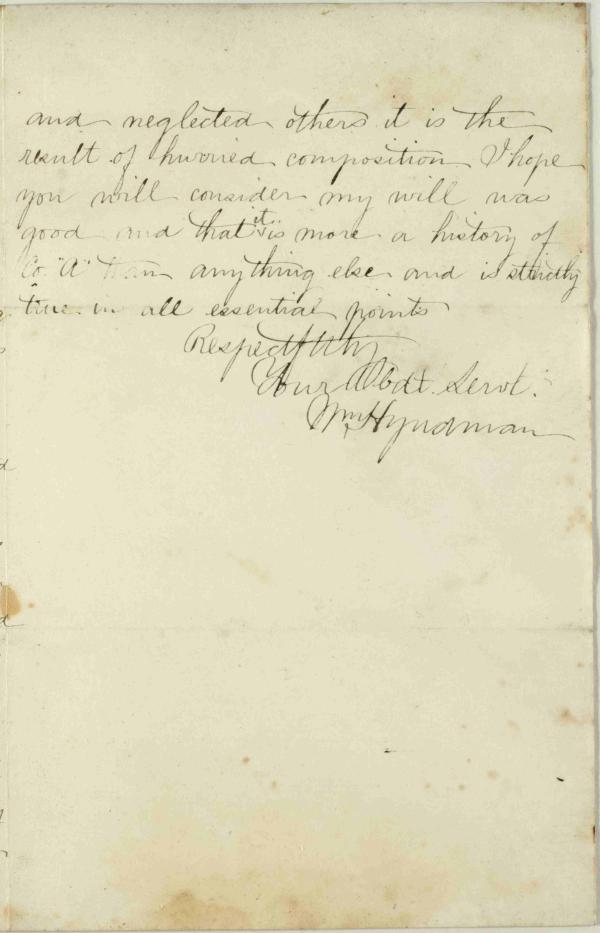 and neglected others it is the
result of hurried composition I hope
you will consider my will was
good and that it is more a history of
Co. "A" than anything else and is strictly
true in all essential points
Respectfully
Your Obdt. Servt.
Wm Hyndman